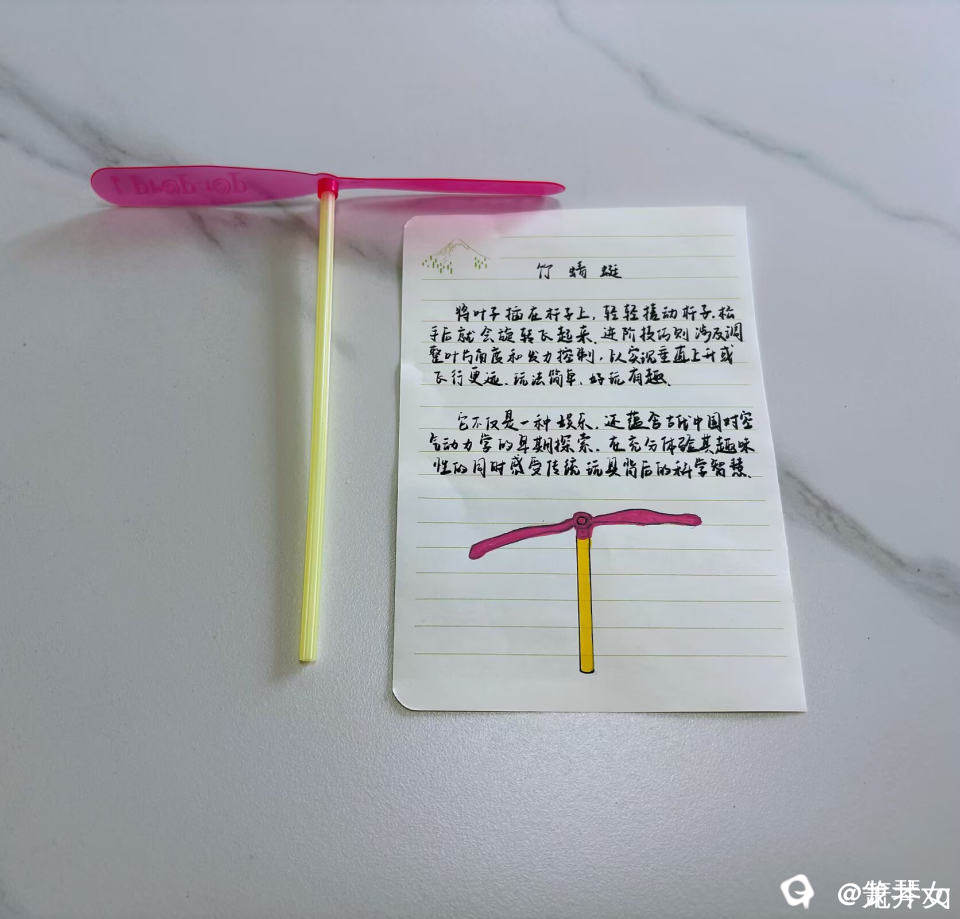 竹蜻蜓
将叶子插在杆子上,轻轻搓动杆子.松
手后就会旋转飞起来.进阶技巧则涉及调
整叶片角度和发力控制,以实现垂直上升或
飞行更远.玩法简单,好玩有趣.
它不仅是一种娱乐,还蕴含古代中国对空
气动力学的早期探索.在充分体验其趣味
性的同时感受传统玩具背后的科学智慧.